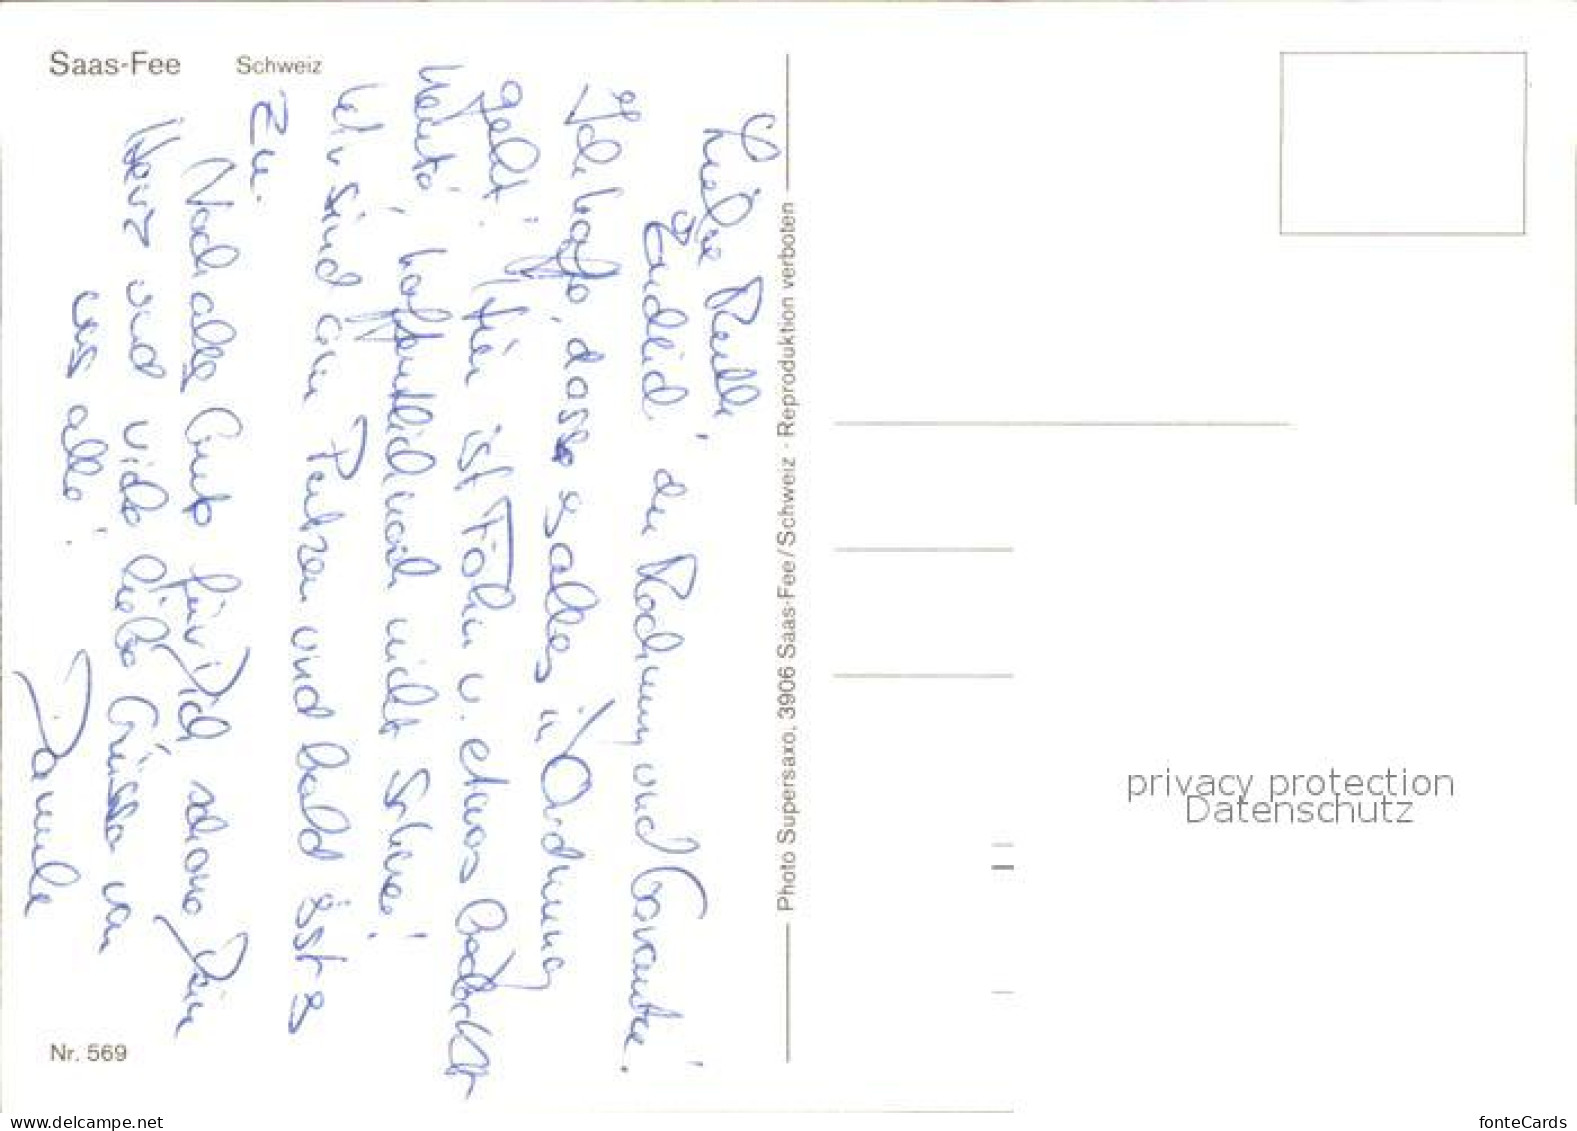 Saas-Fee Schweiz
Liebe Ruth
Endlich die Rechnung und Garantie!
Ich hoffe, dass es alles in Ordnung
geht. Hier ist Föhn u. etwas bedeckt
heute, hoffentlich noch nicht Schnee!
Wir sind am Putzen und bald ist es
zu.
Nach alles Gute für Dich sowie Dein
Heinz und viele liebe Grüsse von
uns alle!
Photo Supersaxo, 3906 Saas-Fee/Schweiz · Reproduktion verboten
Nr. 569
privacy protection
Datenschutz
www.delcampe.net
fonteCards